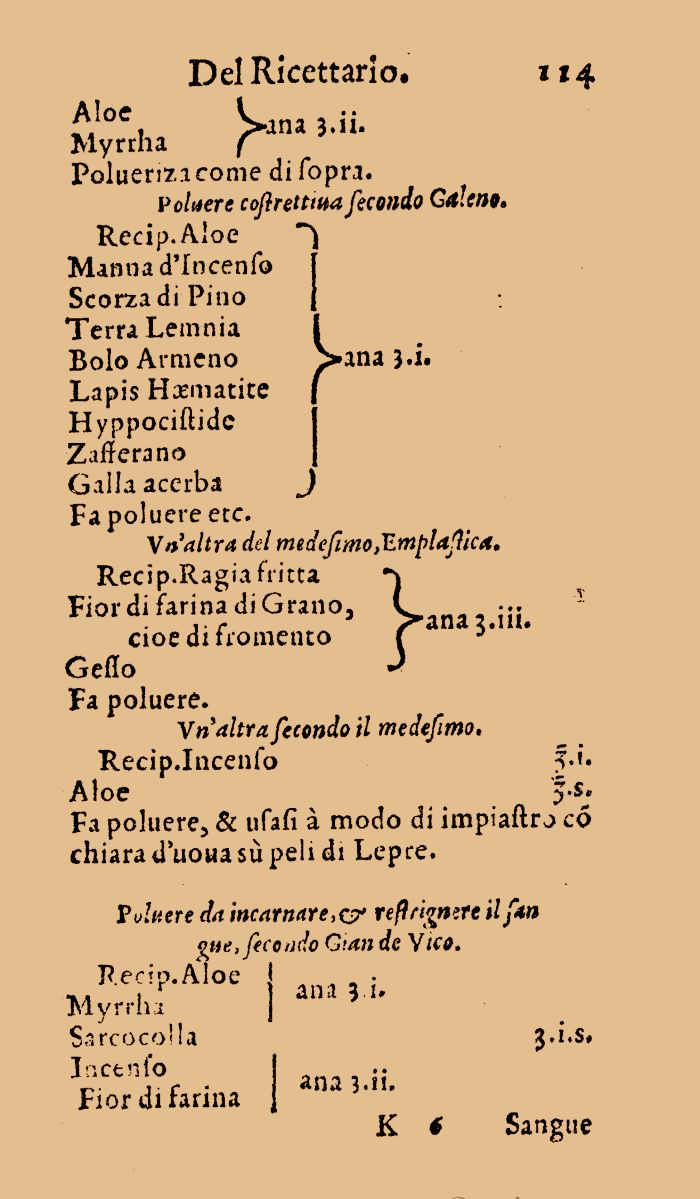 Del Ricettario. 114
Aloe
Myrrha
ana ʒ.ii.
Polueriza come di ſopra.
Poluere coſtrettiua ſecondo Galeno.
Recip. Aloe
Manna d'Incenſo
Scorza di Pino
Terra Lemnia
Bolo Armeno
ana ʒ.i.
Lapis Hæmatite
Hyppociſtide
Zafferano
Galla acerba
Fa poluere etc.
Vn'altra del medeſimo, Emplaſtica.
Recip. Ragia fritta
Fior di farina di Grano,
cioe di fromento
ana ʒ.iii.
Geſſo
Fa poluere.
Vn'altra ſecondo il medeſimo.
Recip. Incenſo ʒ̃.i.
Aloe ʒ̃.s.
Fa poluere, & uſaſi à modo di impiaſtro cõ
chiara d'uoua sù peli di Lepre.
Poluere da incarnare, & reſtrignere il ſan
gue, ſecondo Gian de Vico.
Recip. Aloe
Myrrha
ana ʒ.i.
Sarcocolla ʒ.i.s.
Incenſo
Fior di farina
ana ʒ.ii.
K 6 Sangue